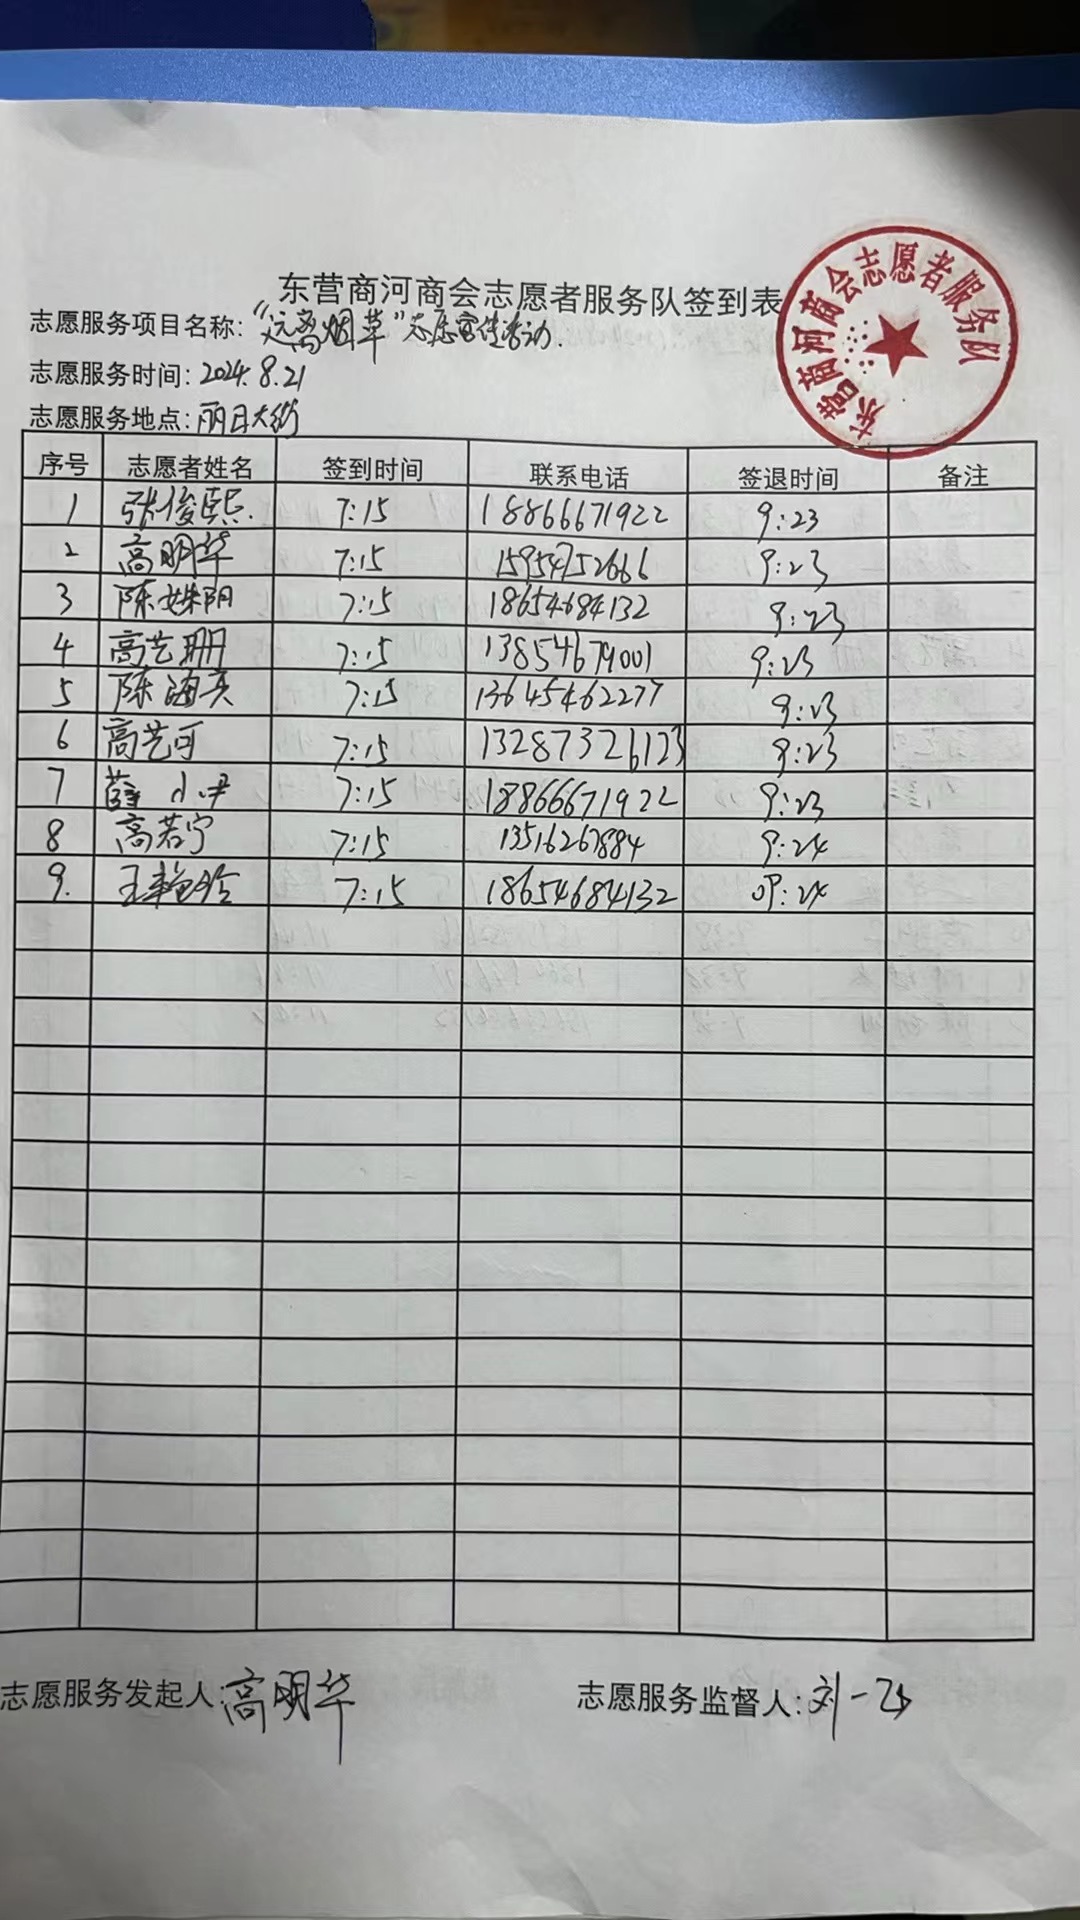 东营商河商会志愿者服务队签到表
东营商河商会志愿者服务队
志愿服务项目名称:“远离烟草”志愿宣传活动.
志愿服务时间: 2024.8.21
志愿服务地点: 丽日大街
序号 志愿者姓名 签到时间 联系电话 签退时间 备注
1 张俊熙. 7:15 18866671922 9:23
2 高明华 7:15 15954752666 9:23
3 陈姝阴 7:15 18654684132 9:23
4 高艺珊 7:15 13854679001 9:23
5 陈海英 7:15 13645462277 9:23
6 高艺可 7:15 13287326123 9:23
7 薛小 7:15 18866671922 9:23
8 高若宁 7:15 13516267884 9:24
9. 王艳玲 7:15 18654684132 09:24
志愿服务发起人: 高明华
志愿服务监督人: 刘一